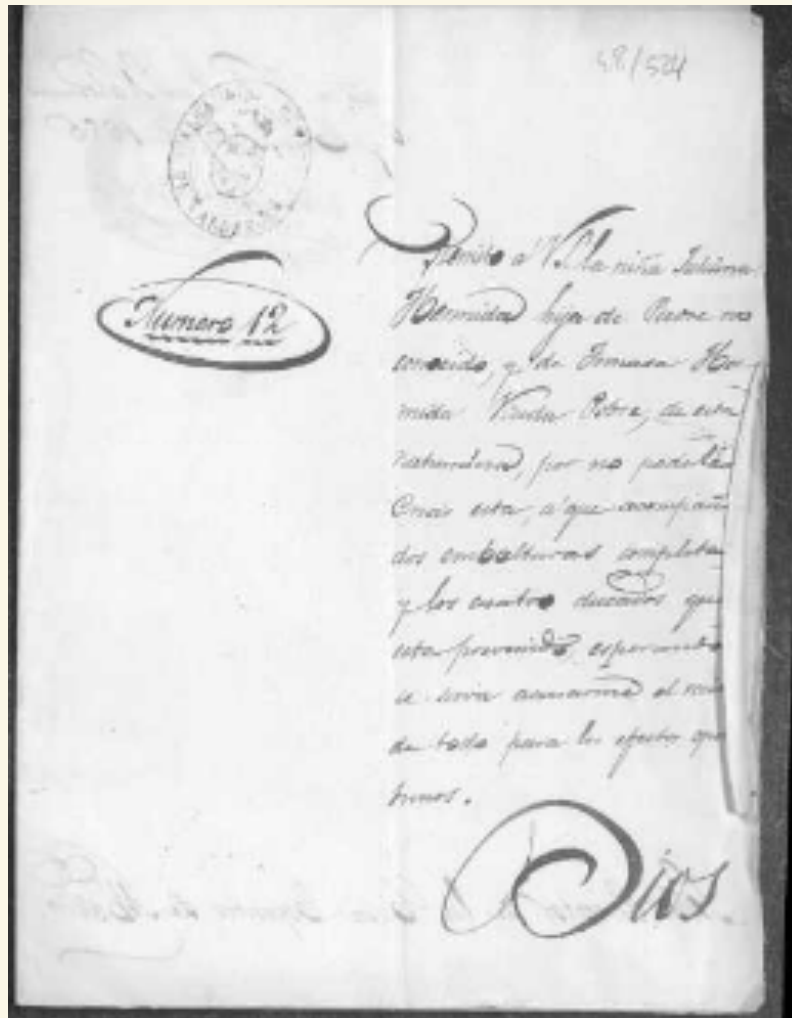 58/524
Numero 12
Remito a V. la niña Juliana
Hermida hija de Padre no
conocido, y de Tomasa Her
mida Viuda Pobre, de esta
naturaleza, por no poderla
Criar esta, a que acompaño
dos embolturas completas
y los cuatro ducados que
esta prevenido, esperando
se sirva acusarme el reci
de todo para los efectos opor
tunos.
Dios